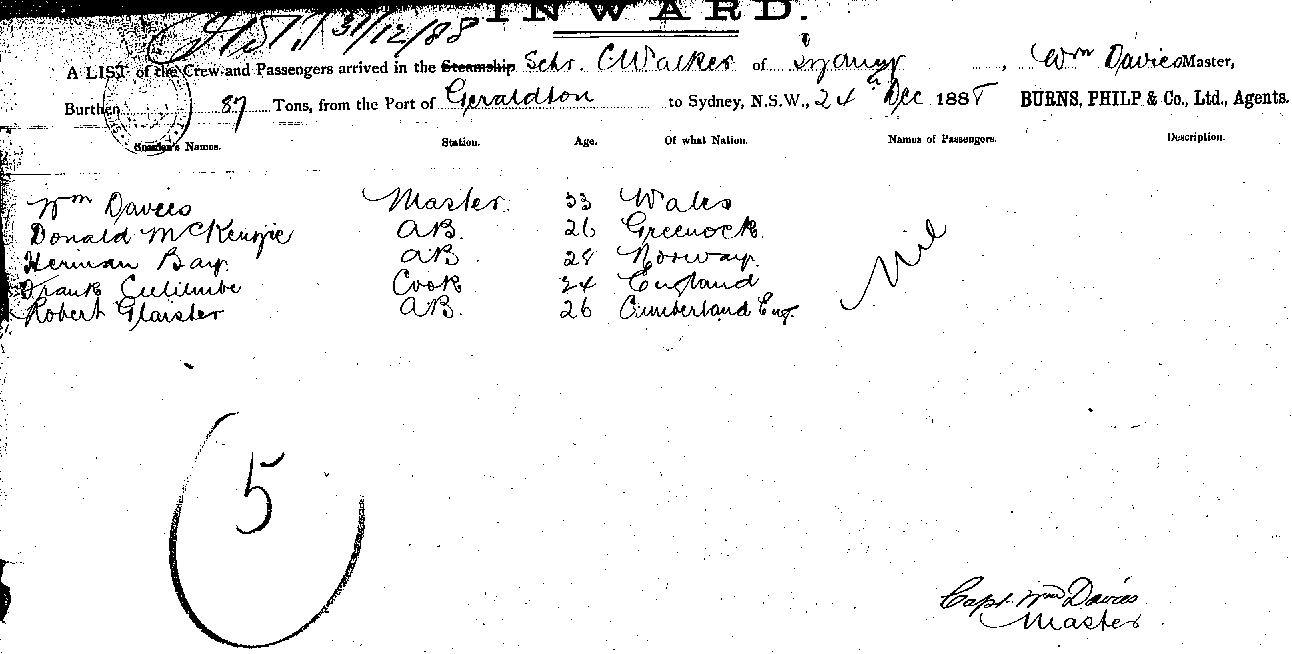 INWARD.
31/12/88
A LIST of the Crew and Passengers arrived in the Steamship Schr. C Walker of Sydney, Wm Davies Master,
Burthen 87 Tons, from the Port of Geraldton to Sydney, N.S.W., 24 Dec 1888 BURNS, PHILP & Co., Ltd., Agents.
Names. Station. Age. Of what Nation. Names of Passengers. Description.
Wm Davies Master. 33 Wales
Donald McKenzie AB. 26 Greenock Nil
Herman Bay. AB. 28 Norway.
Frank Cook 24 England
Robert Glaister AB. 26 Cumberland Eng.
5
Capt. Wm Davies
Master